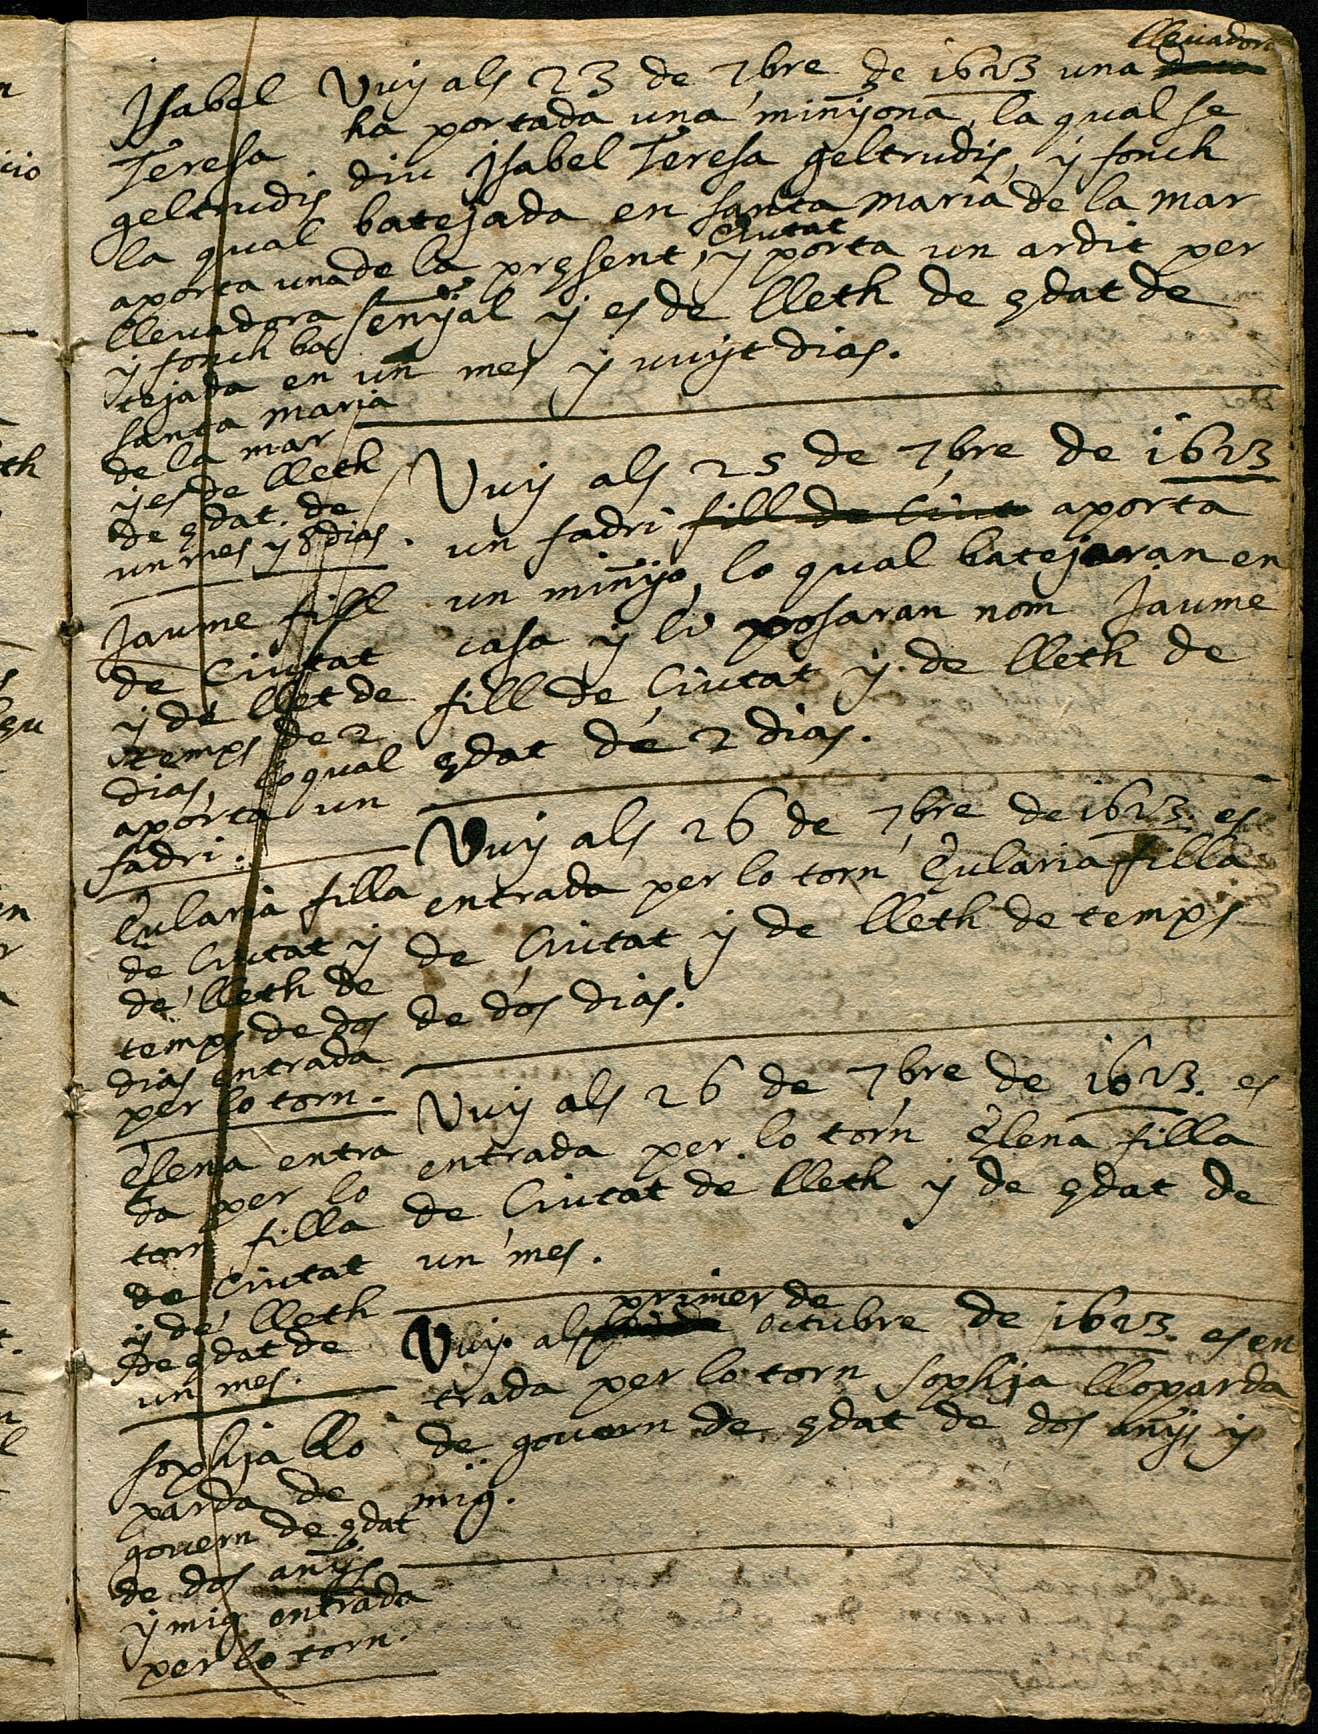 llevadora
Uuy als 23 de 7bre de 1623 una
ha portada una minyona, la qual se
diu Jsabel Teresa geltrudis, y fonch
batejada en santa maria de la mar
ciutat
de la present, y porta un ardit per
senyal y es de lleth de edat de
un mes y vuyt dias.
Jsabel
Teresa
geltrudis
la qual
aporta una
llevadora
y fonch bat
tejada en
santa maria
de la mar
y es de lleth
de edat. de
un mes y 8 dias.
Uuy als 25 de 7bre de 1623
un fadri fill de Ciut aporta
un minyo, lo qual batejaran en
casa y li posaran nom Jaume
fill de Ciutat y de lleth de
edat de 2 dias.
Jaume fill
de Ciutat
y de llet de
temps de 2
dias, lo qual
aporta un
fadri.
Uuy als 26 de 7bre de 1623. es
entrada per lo torn Eularia filla
de Ciutat y de lleth de temps
de dos dias.
Eularia filla
de Ciutat y
de lleth de
temps de dos
dias entrada
per lo torn.
Uuy als 26 de 7bre de 1623. es
entrada per lo torn Elena filla
de Ciutat de lleth y de edat de
un mes.
Elena entra
da per lo
torn filla
de Ciutat
y de lleth
de edat de
un mes.
primer de
Uuy als octubre de 1623. es en
trada per lo torn Sophja lloparda
de govern de edat de dos anys y
mig.
Sophja llo
parda de
govern de edat
de dos anys
y mig entrada
per lo torn.